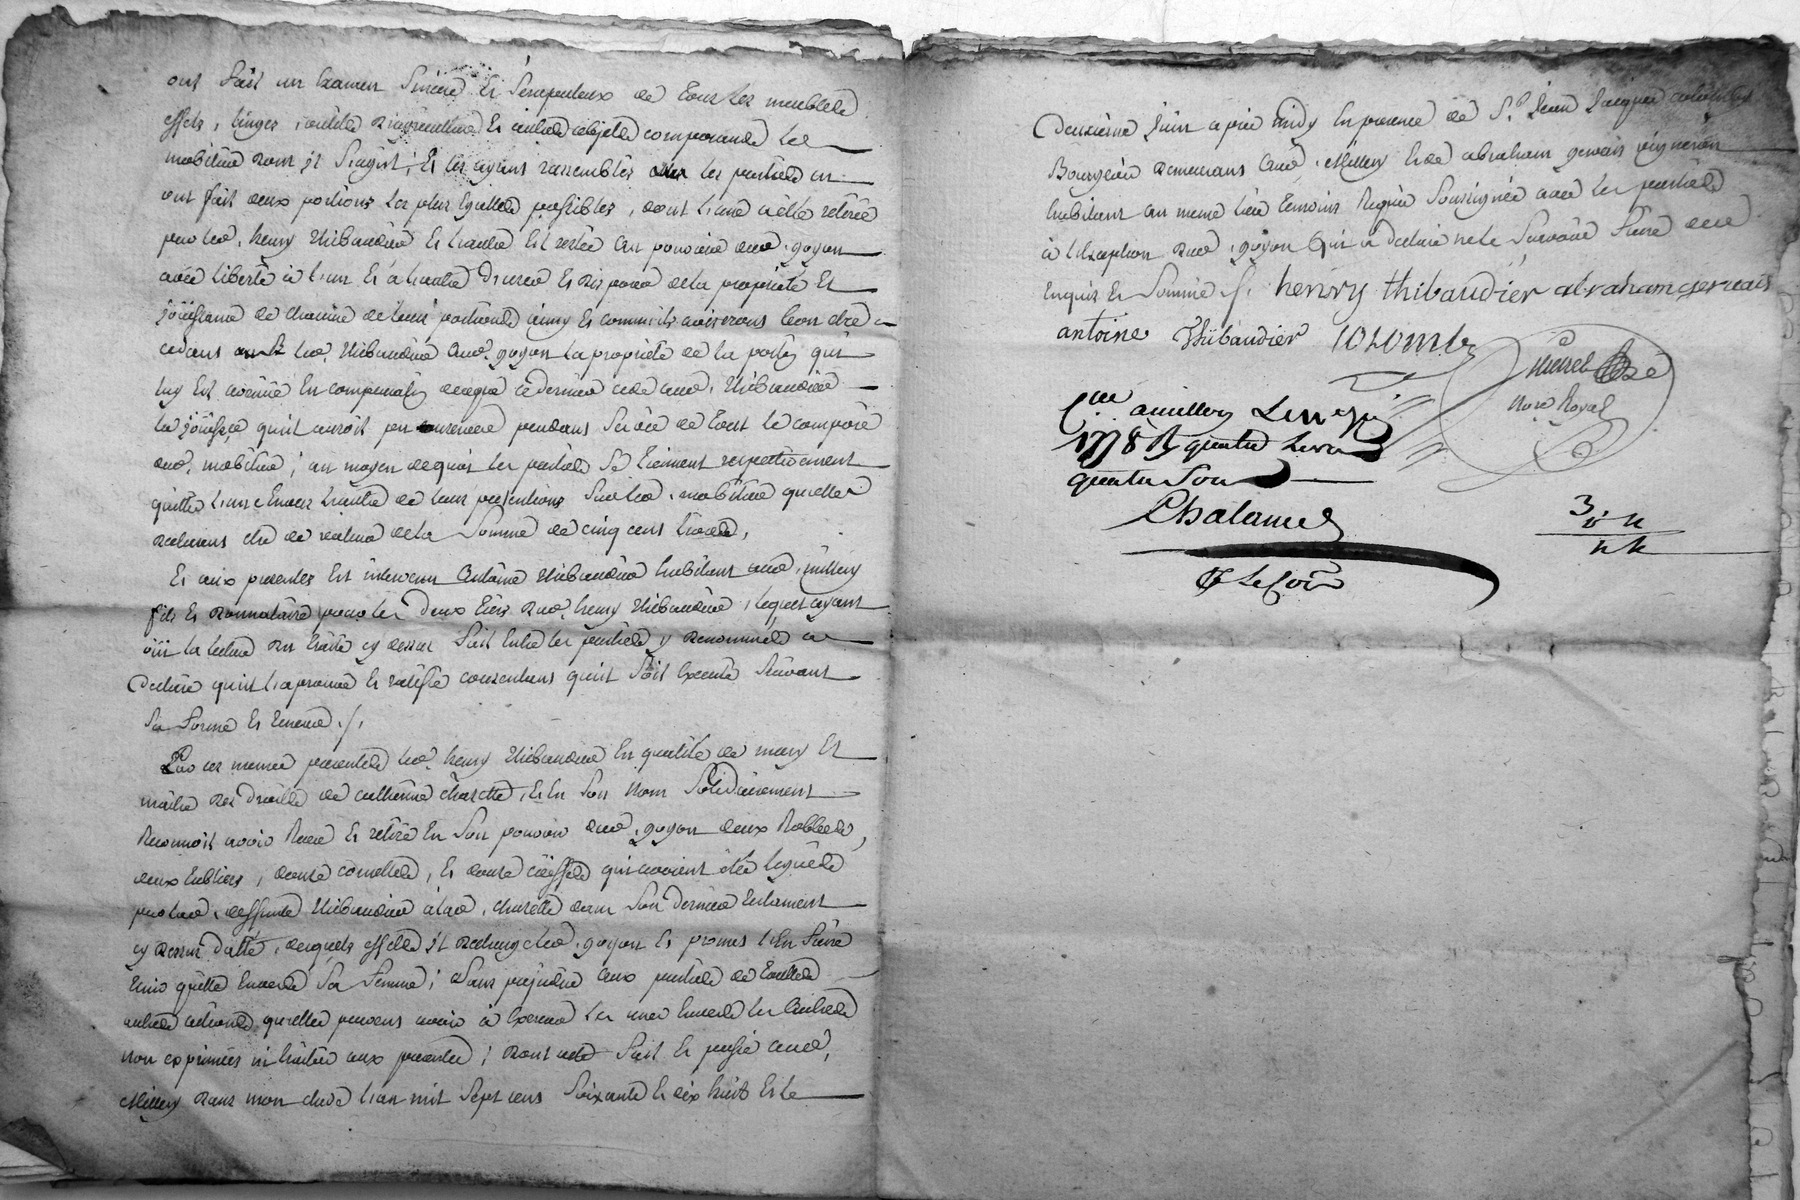 ont fait un Examen Sincere Et Scrupuleux de tous les meubles
effets, linges, outils d'agriculture Et autres objets composants le
mobilier dont il s'agist; Et les ayant rassemblés les parties en
ont fait deux portions les plus Egalles possibles, dont l'une a été retirée
par led. henry thibaudier Et l'autre Est restée au pouvoir dud. goyon
avec liberté à l'un Et à l'autre d'user Et disposer de la propriété Et
joüissance de chacune de leurs portions ainsy Et comme ils aviseront bon etre
cedant led. thibaudier aud. goyon la propriété de la portion qui
luy Est avenüe En compensation dequoy ce dernier cede aud. thibaudier
la joüissce qu'il auroit pu pendant sa vie de tout le composé
dud. mobilier; au moyen dequoy les parties se tiennent respectivement
quittes l'une Envers l'autre de leurs pretentions sur led. mobilier qu'elles
declarent etre de valeur de la somme de cinq cens livres,
Et aux presentes Est intervenu Antoine thibaudier habitant aud. millery
fils Et donnataire pour les deux tiers dud. henry thibaudier, lequel ayant
oüi la lecture du traité cy dessus fait Entre les parties y denommées a
declaré qu'il l'aprouve Et ratifie consentant qu'il soit Executé suivant
sa forme Et teneur ./.
Par ces memes presentes led. henry thibaudier En qualité de mary Et
maitre des droits de catherine charette, Et En son nom solidairement
Reconnoit avoir Receu Et retiré En son pouvoir dud. goyon deux Robbes,
deux tabliers, douze cornettes, Et douze coëffes qui avoient étés legués
par lad. deffunte thibaudier à lad. charette dans son dernier testament
cy dessus datté, desquels effets il decharge led. goyon Et promet l'En faire
tenir quitte Envers sa femme; sans prejudice aux parties de touttes
autres actions qu'elles peuvent avoir à Exercer les unes Envers les Autres
non exprimées ni traitées aux presentes; dont acte fait Et passé aud.
Millery dans mon etude l'an mil sept cens soixante Et dix huit Et le
Deuxieme Juin après midy En presence de Sr. Jean Jacques
Bourgeois demeurant aud. Millery Et de abraham gervais vigneron
habitant au meme lieu temoins Requis soussignés avec les parties
à l'Exception dud. goyon qui a declaré ne le sçavoir faire de ce
Enquis Et sommé ./. henry thibaudier abraham gervais
antoine Thibaudier
nore Royal
1778 R quatre livres
quatre Sou
Chalamel